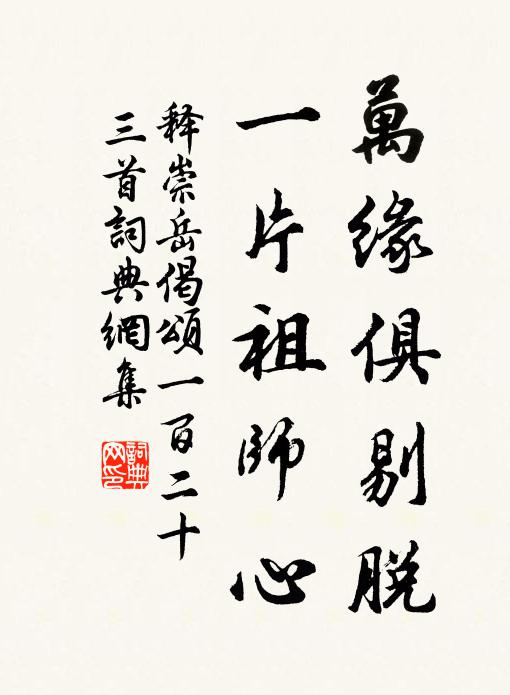 萬緣俱剔脫
一片祖師心
释崇岳偈頌一百二十
三首詞典網集
詞典网印